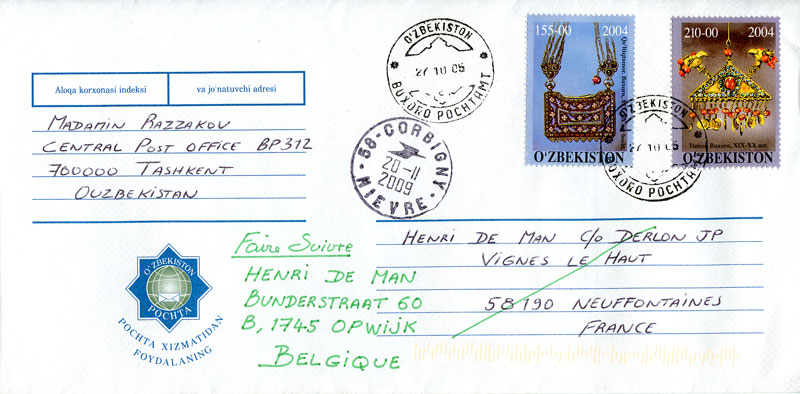 Aloqa korxonasi indeksi va jo'natuvchi adresi
MADAMIN RAZZAKOV
CENTRAL POST OFFICE BP 312
700000 TASHKENT
OUZBEKISTAN
O'ZBEKISTON
27 10 05
BUXORO POCHTAMT
58-CORBIGNY
20-11
2009
NIEVRE
155-00 2004
O'ZBEKISTON
210-00 2004
Tumor, Buxoro, XIX-XX asr.
O'ZBEKISTON
O'ZBEKISTON
27 10 05
BUXORO POCHTAMT
HENRI DE MAN C/o DERLON JP
VIGNES LE HAUT
58190 NEUFFONTAINES
FRANCE
Faire Suivre
HENRI DE MAN
BUNDERSTRAAT 60
B, 1745 OPWIJK
BELGIQUE
O'ZBEKISTON
POCHTA
POCHTA XIZMATIDAN
FOYDALANING